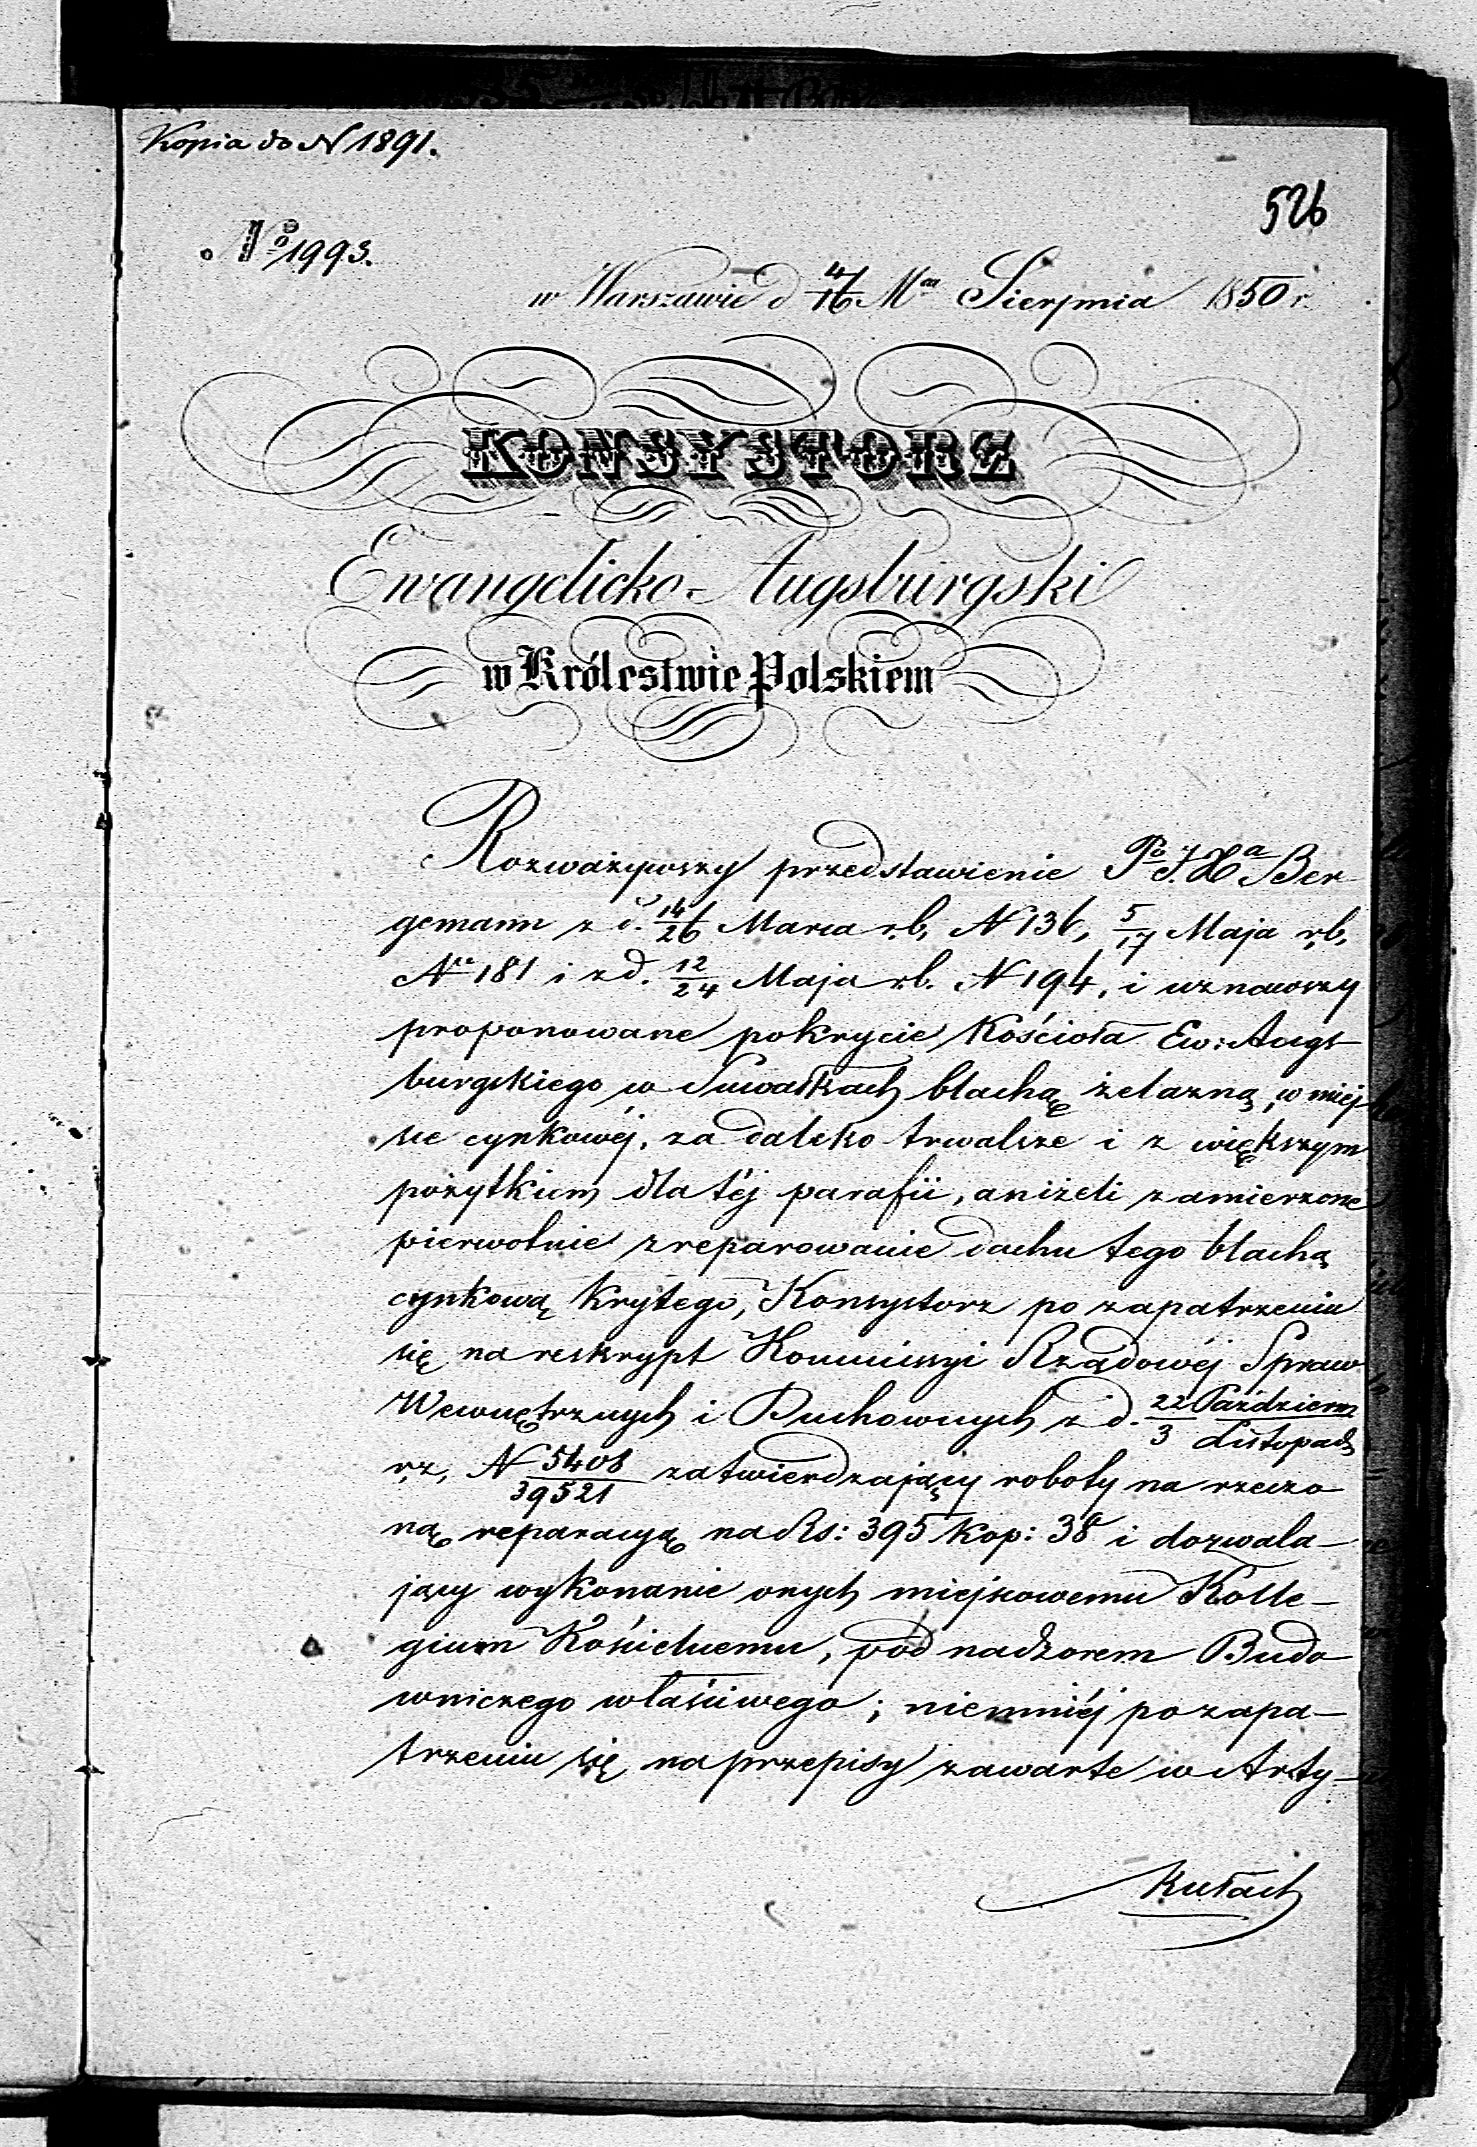 Kopia do N 1891.
526
No 1993.
w Warszawie d 4/16 Ma Sierpnia 1850 r.
KONSYSTORZ
Ewangelicko-Augsburgski
w Królestwie Polskiem
Rozważywszy przedstawienie Ber-
gemann z d. 14/26 Marca r.b. N 136, 5/17 Maja r.b.
N 181 i z d. 12/24 Maja r.b. N 194, i uznawszy
proponowane pokrycie Kościoła Ew: Augs-
burgskiego w Suwałkach blachą żelazną, w miej-
sce cynkowéj, za daleko trwalsze i z większym
pożytkiem dla téj parafii, aniżeli zamierzone
pierwotnie zreparowanie dachu tego blachą
cynkową krytego, Konsystorz po zapatrzeniu
się na reskrypt Kommissyi Rządowéj Spraw
Wewnętrznych i Duchownych z d. 22 Październ/3 Listopad
r.z. N 5408/39521 zatwierdzający roboty na rzeczo-
ną reparacyą na Rs: 395 kop: 38 i dozwala-
jący wykonanie onych miejscowemu Kolle-
gium Kościelnemu, pod nadzorem Budo-
wniczego właściwego; niemniéj po zapa-
trzeniu się na przepisy zawarte w Arty-
Kułach